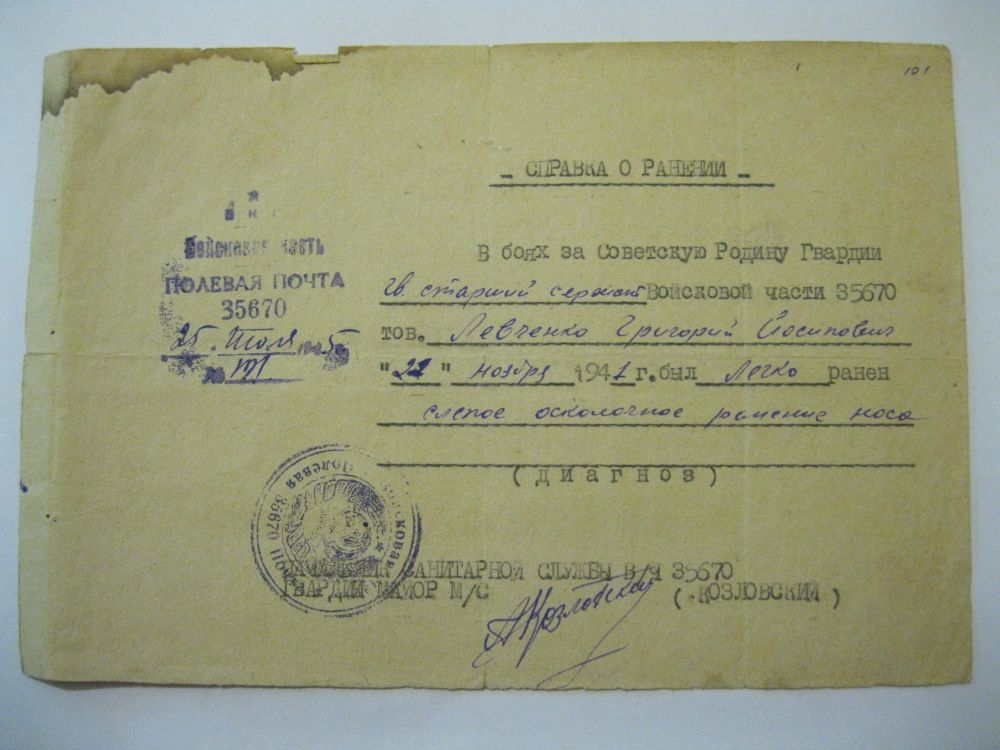 101
- СПРАВКА О РАНЕНИИ -
Войсковая часть
ПОЛЕВАЯ ПОЧТА
35670
25. Июля 1945
№ 191
В боях за Советскую Родину Гвардии
гв. старший сержант Войсковой части 35670
тов. Левченко Григорий Иосипович
"22" ноября 1941 г. был Легко ранен
слепое осколочное ранение носа
( Д И А Г Н О З )
Войсковая Полевая 35670
НАЧАЛЬНИК САНИТАРНОЙ СЛУЖБЫ В/Ч 35670
ГВАРДИИ МАЙОР М/С АКозловский ( КОЗЛОВСКИЙ )